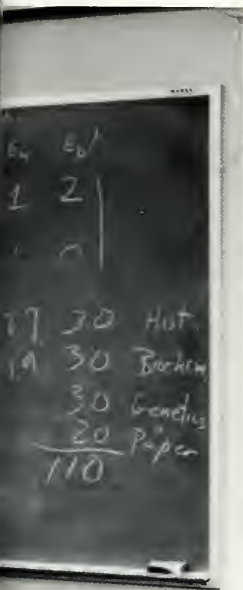 1 2
30 Hist.
19 30 Biochem
30 Genetics
20 Paper
110